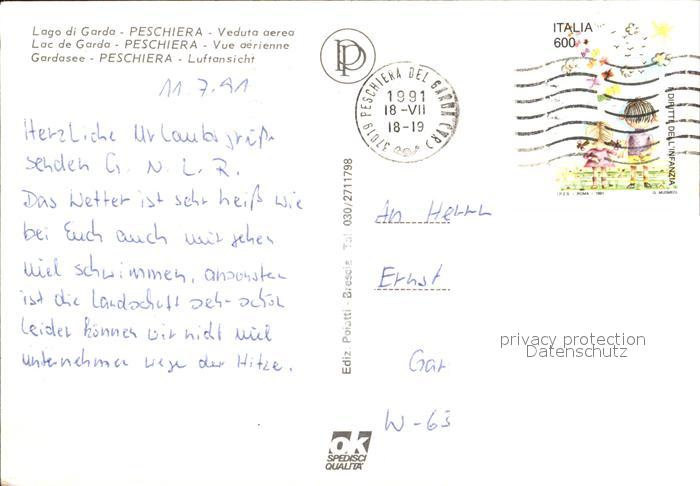 Lago di Garda - PESCHIERA - Veduta aerea
Lac de Garda - PESCHIERA - Vue aérienne
Gardasee - PESCHIERA - Luftansicht
11.7.91
Herzliche Urlaubsgrüße
senden G. N. L. R.
Das Wetter ist sehr heiß wie
bei Euch auch wir gehen
viel schwimmen, ansonsten
ist die Landschaft seh- schön
leider können wir nicht viel
unternehmen wege der Hitze.
Ediz. Poiatti - Brescia Tel. 030/2711798
PP
37019 PESCHIERA DEL GARDA (VR)
1991
18-VII
18-19
ITALIA
600
I DIRITTI DELL'INFANZIA
I.P.Z.S. - ROMA - 1991
An Herrn
Ernst
Gar
W-63
privacy protection
Datenschutz
ok
SPEDISCI
QUALITA'